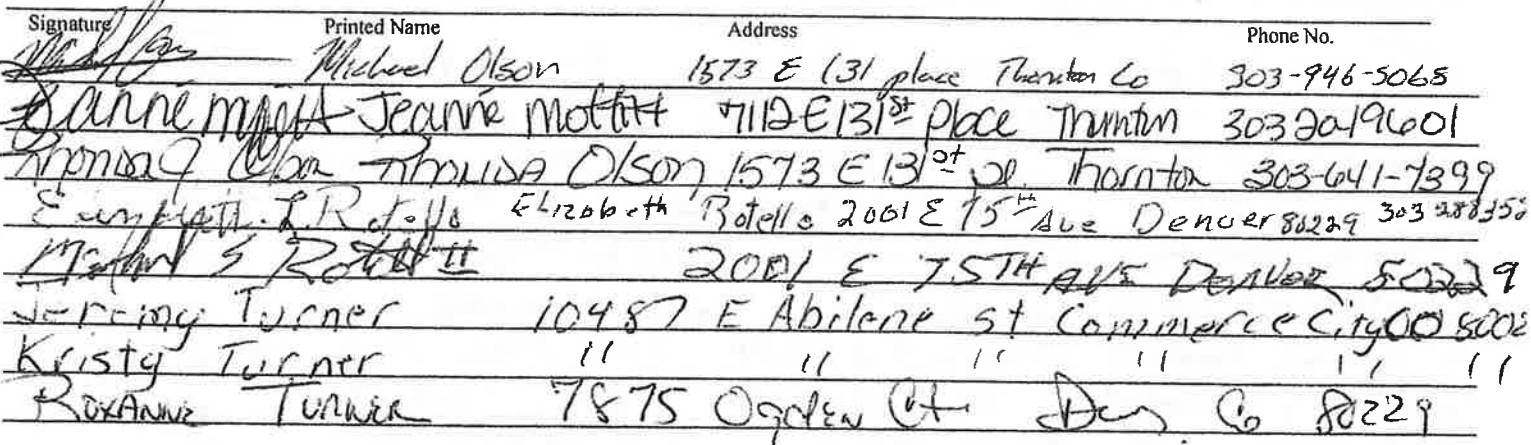 Signature Printed Name Address Phone No.
Michael Olson 1573 E 131 place Thornton Co 303-946-5065
Jeanne Moffitt Jeanne Moffitt 7112 E 131st Place Thornton 303 2019601
Rhonda J Olson Rhonda Olson 1573 E 131st pl. Thornton 303-641-7399
L Rotello Elizabeth Rotello 2001 E 75th Ave Denver 80229 303
S 2001 E 75TH AVE DENVER 80229
Jeremy Turner 10487 E Abilene st Commerce City CO 8002
Kristy Turner " " " " " "
Roxanne Turner 7875 Ogden Ct Den Co 80229